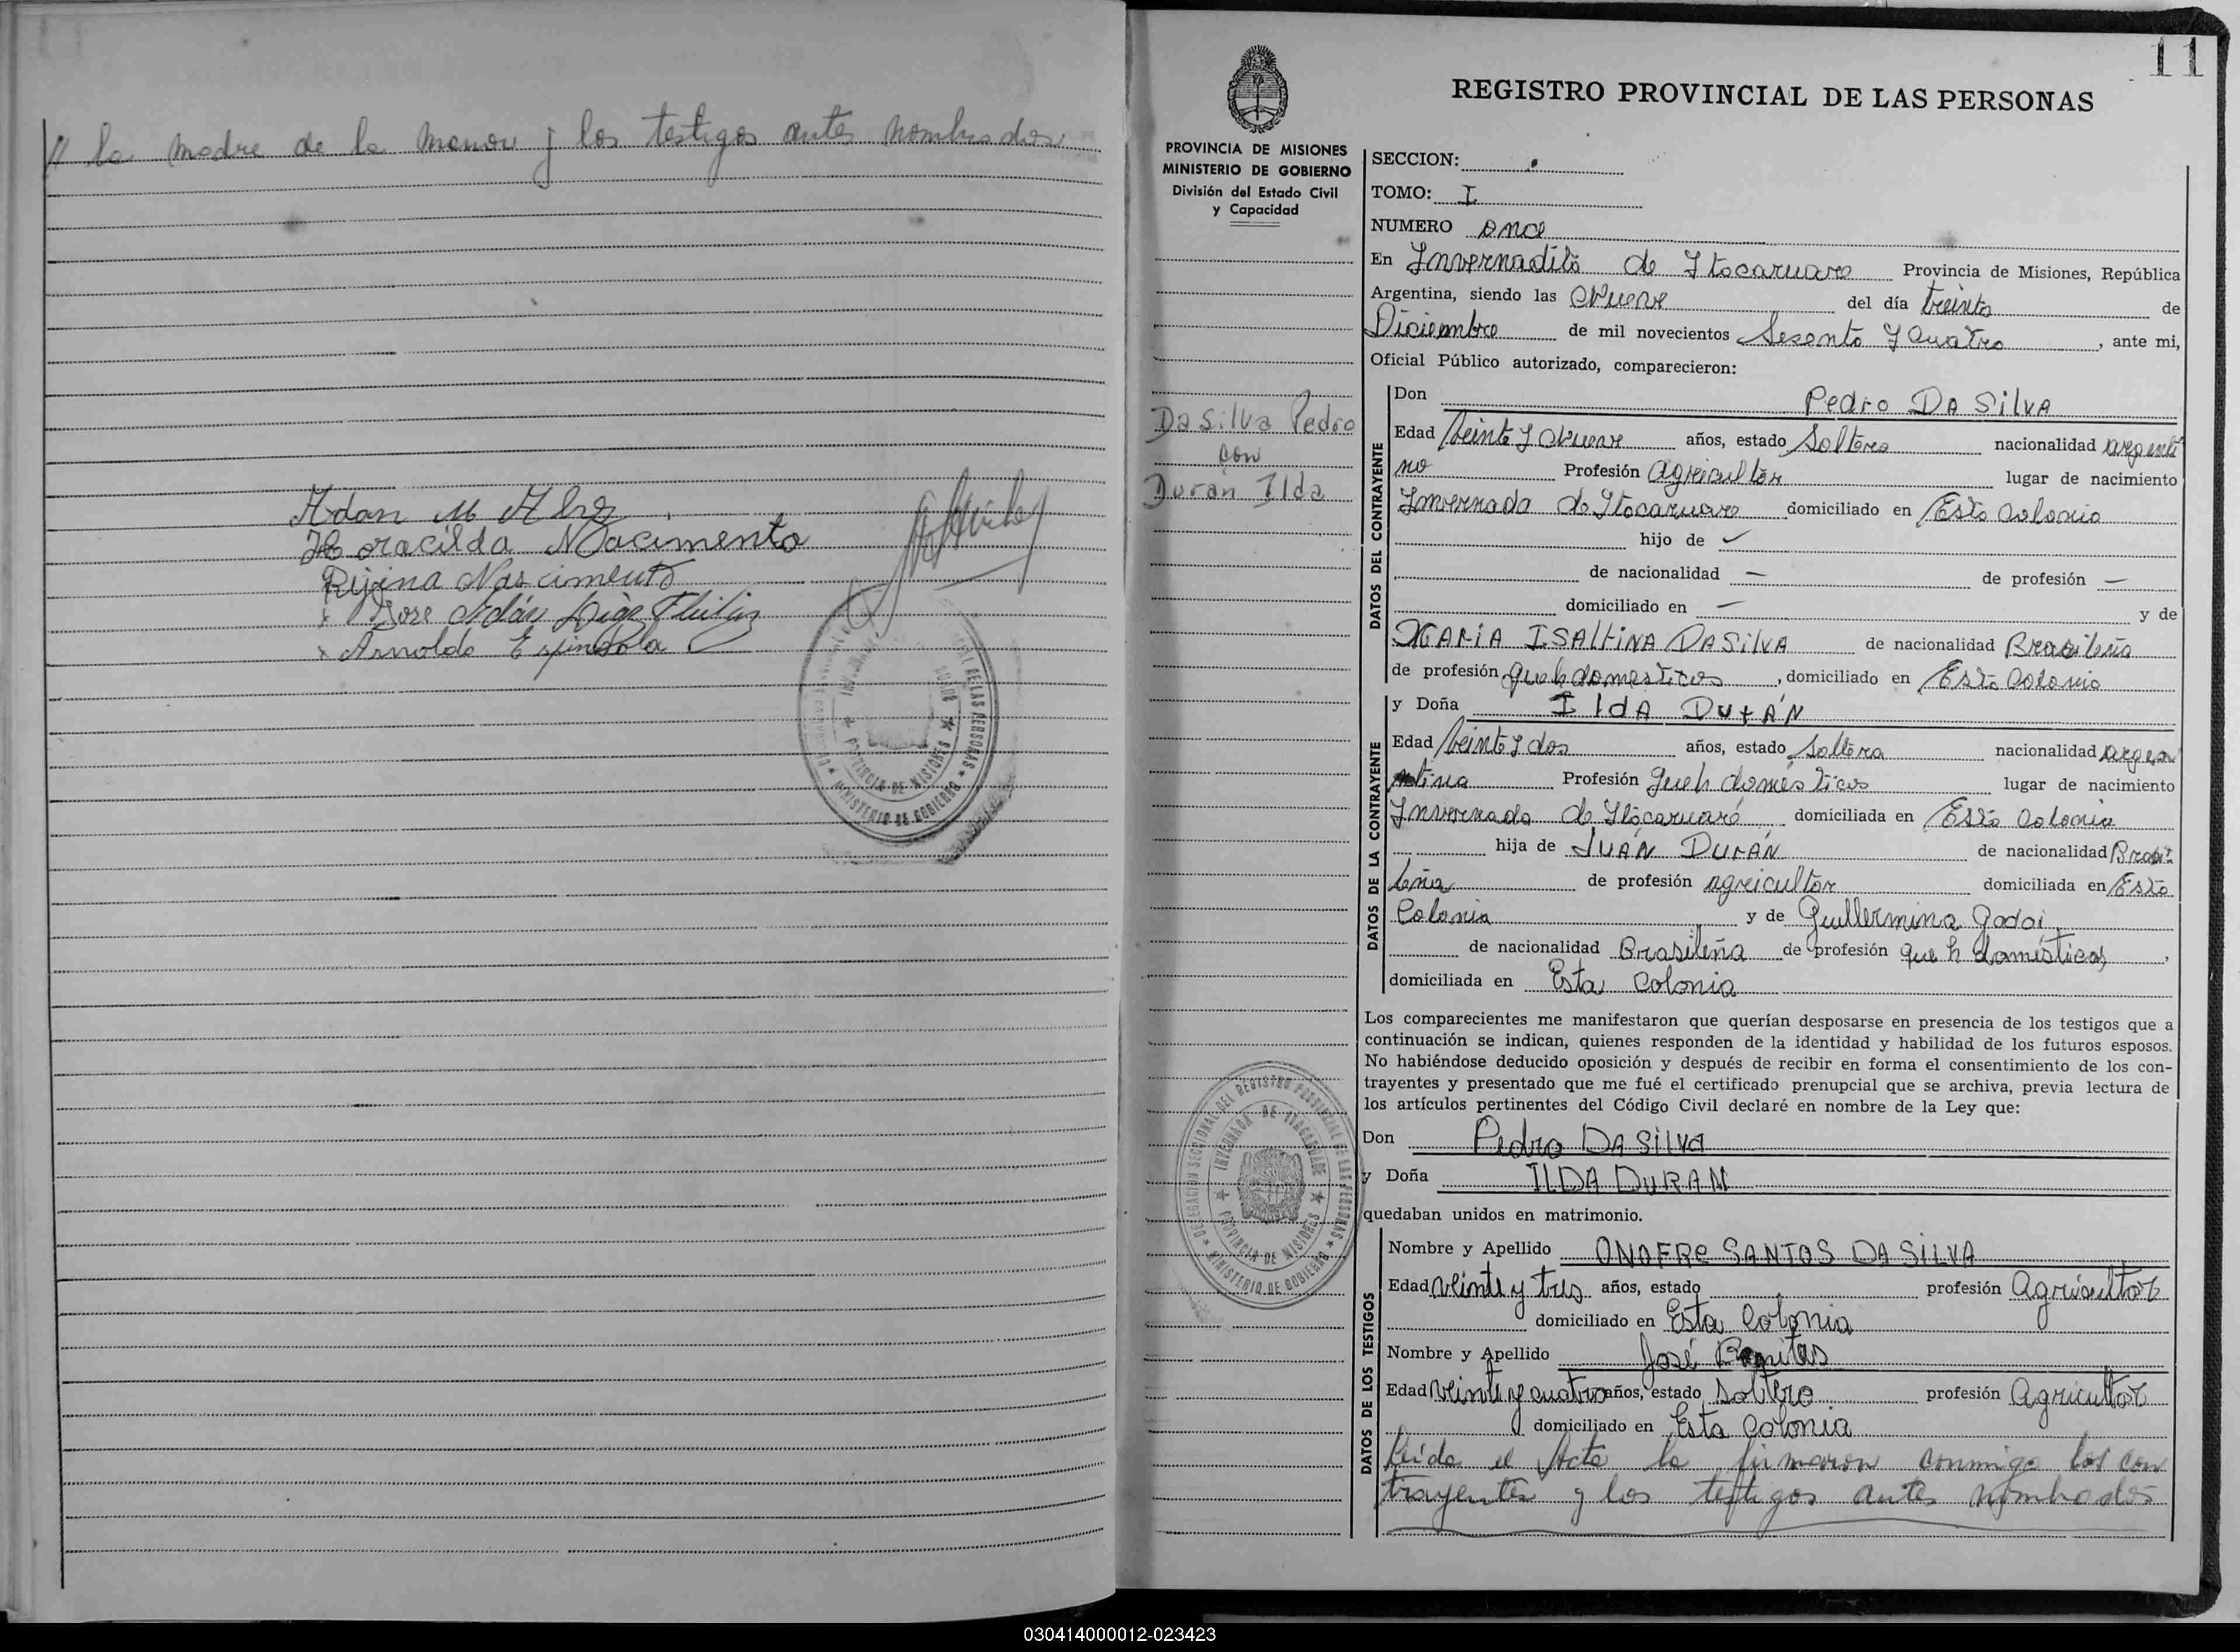 // la madre de la menor y los testigos antes nombrados
Adan M Alvez
Horacilda Nacimento
Rijina Nascimento
x Jose Adán
x Arnoldo Espindola
11
REGISTRO PROVINCIAL DE LAS PERSONAS
PROVINCIA DE MISIONES
MINISTERIO DE GOBIERNO
División del Estado Civil
y Capacidad
Da Silva Pedro
con
Durán Ilda
SECCION:
TOMO: I
NUMERO once
En Invernadita de Itacaruare Provincia de Misiones, República
Argentina, siendo las Nueve del día treinta de
Diciembre de mil novecientos Sesenta Y Cuatro, ante mi,
Oficial Público autorizado, comparecieron:
DATOS DEL CONTRAYENTE
Don Pedro DA SilVA
Edad Veinte y Nueve años, estado Soltero nacionalidad argenti
no Profesión agricultor lugar de nacimiento
Invernada de Itacaruare domiciliado en Esta Colonia
hijo de
de nacionalidad — de profesión —
domiciliado en — y de
MARIA ISALtiNA DASilVA de nacionalidad Brasileña
de profesión queh domesticos, domiciliado en Esta Colonia
DATOS DE LA CONTRAYENTE
y Doña IldA DurÁN
Edad Veinte y dos años, estado Soltera nacionalidad argen
tina Profesión queh domésticos lugar de nacimiento
Invernada de Itacaruaré domiciliada en Esta Colonia
hija de JUÁN DUrÁN de nacionalidad Brasi
leña de profesión agricultor domiciliada en Esta
Colonia y de Guillermina Godoi
de nacionalidad Brasileña de profesión que h domésticos,
domiciliada en Esta Colonia
Los comparecientes me manifestaron que querían desposarse en presencia de los testigos que a
continuación se indican, quienes responden de la identidad y habilidad de los futuros esposos.
No habiéndose deducido oposición y después de recibir en forma el consentimiento de los con-
trayentes y presentado que me fué el certificado prenupcial que se archiva, previa lectura de
los artículos pertinentes del Código Civil declaré en nombre de la Ley que:
Don Pedro DA SilVa
y Doña ILDA DuRAN
quedaban unidos en matrimonio.
DATOS DE LOS TESTIGOS
Nombre y Apellido ONOFRE SANTOS DA SILVA
Edad veinte y tres años, estado profesión Agricultor
domiciliado en Esta Colonia
Nombre y Apellido José
Edad veinte y cuatro años, estado soltero profesión Agricultor
domiciliado en Esta Colonia
Leida el Acta la firmaron conmigo los con
trayentes y los testigos antes nombrados
DELEGACION SECCIONAL DEL REGISTRO PROVINCIAL DE LAS PERSONAS
INVERNADA DE ITACARUARE
PROVINCIA DE MISIONES
MINISTERIO DE GOBIERNO
030414000012-023423